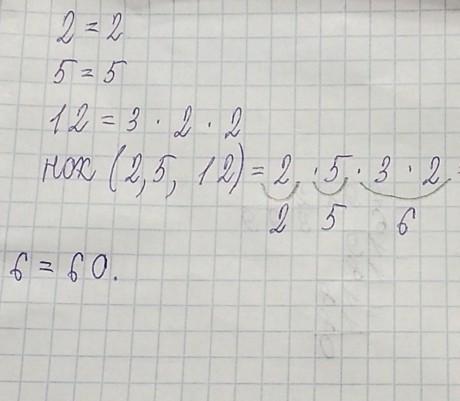 2 = 2
5 = 5
12 = 3 · 2 · 2
нок (2, 5, 12) = 2 · 5 · 3 · 2 =
2 5 6
6 = 60.